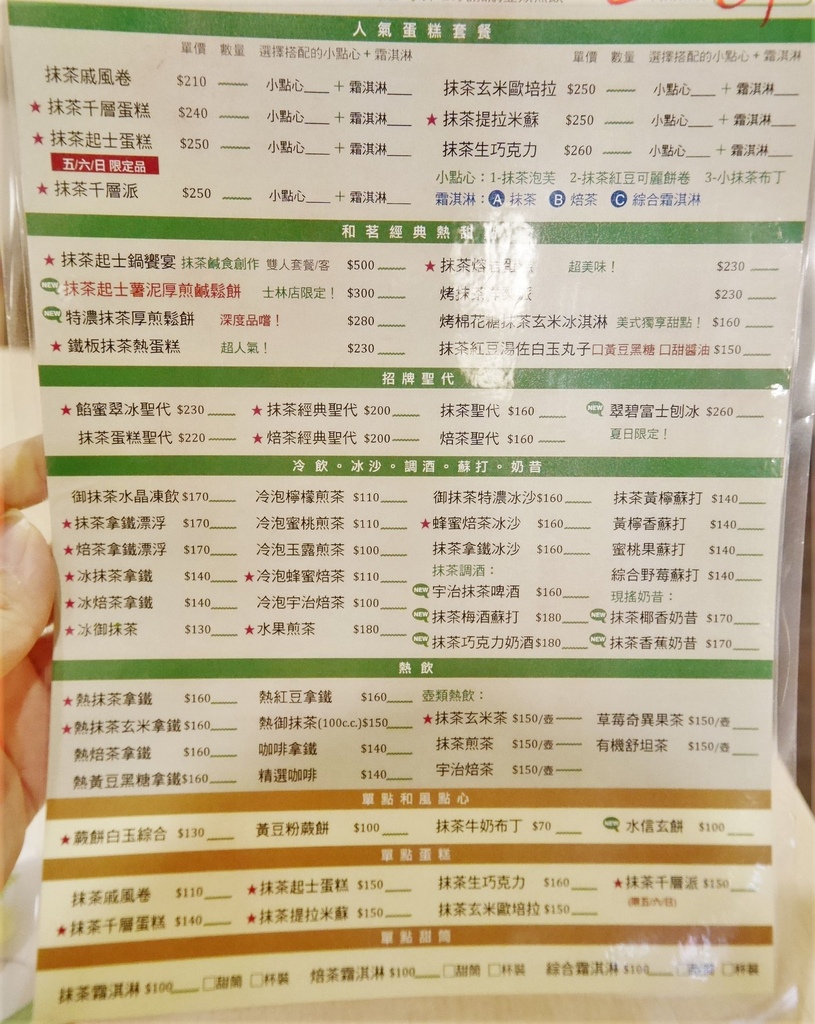 人氣蛋糕套餐
單價 數量 選擇搭配的小點心+霜淇淋 單價 數量 選擇搭配的小點心+霜淇淋
抹茶戚風卷 $210 小點心___ + 霜淇淋___
★抹茶千層蛋糕 $240 小點心___ + 霜淇淋___
★抹茶起士蛋糕 $250 小點心___ + 霜淇淋___
五/六/日 限定品
★抹茶千層派 $250 小點心___ + 霜淇淋___
抹茶玄米歐培拉 $250 小點心___ + 霜淇淋___
★抹茶提拉米蘇 $250 小點心___ + 霜淇淋___
抹茶生巧克力 $260 小點心___ + 霜淇淋___
小點心:1-抹茶泡芙 2-抹茶紅豆可麗餅卷 3-小抹茶布丁
霜淇淋:A 抹茶 B 焙茶 C 綜合霜淇淋
和茗經典熱甜
★抹茶起士鍋饗宴 抹茶鹹食創作 雙人套餐/客 $500
NEW 抹茶起士薯泥厚煎鹹鬆餅 士林店限定! $300
NEW 特濃抹茶厚煎鬆餅 深度品嚐! $280
★鐵板抹茶熱蛋糕 超人氣! $230
★抹茶熔岩 超美味! $230
烤抹茶 派 $230
烤棉花糖抹茶玄米冰淇淋 美式獨享甜點! $160
抹茶紅豆湯佐白玉丸子 口黃豆黑糖 口甜醬油 $150
招牌聖代
★餡蜜翠冰聖代 $230 ★抹茶經典聖代 $200 抹茶聖代 $160 NEW 翠碧富士刨冰 $260
抹茶蛋糕聖代 $220 ★焙茶經典聖代 $200 焙茶聖代 $160 夏日限定!
冷飲。冰沙。調酒。蘇打。奶昔
御抹茶水晶凍飲 $170
★抹茶拿鐵漂浮 $170
★焙茶拿鐵漂浮 $170
★冰抹茶拿鐵 $140
★冰焙茶拿鐵 $140
★冰御抹茶 $130
冷泡檸檬煎茶 $110
冷泡蜜桃煎茶 $110
冷泡玉露煎茶 $100
★冷泡蜂蜜焙茶 $110
冷泡宇治焙茶 $100
★水果煎茶 $180
御抹茶特濃冰沙 $160
★蜂蜜焙茶冰沙 $160
抹茶拿鐵冰沙 $160
抹茶調酒:
NEW 宇治抹茶啤酒 $160
NEW 抹茶梅酒蘇打 $180
NEW 抹茶巧克力奶酒 $180
抹茶黃檸蘇打 $140
黃檸香蘇打 $140
蜜桃果蘇打 $140
綜合野莓蘇打 $140
現搖奶昔:
NEW 抹茶椰香奶昔 $170
NEW 抹茶香蕉奶昔 $170
熱飲
★熱抹茶拿鐵 $160
★熱抹茶玄米拿鐵 $160
熱焙茶拿鐵 $160
熱黃豆黑糖拿鐵 $160
熱紅豆拿鐵 $160
熱御抹茶(100c.c.) $150
咖啡拿鐵 $140
精選咖啡 $140
壺類熱飲:
★抹茶玄米茶 $150/壺
抹茶煎茶 $150/壺
宇治焙茶 $150/壺
草莓奇異果茶 $150/壺
有機舒坦茶 $150/壺
單點和風點心
★蕨餅白玉綜合 $130 黃豆粉蕨餅 $100 抹茶牛奶布丁 $70 NEW 水信玄餅 $100
單點蛋糕
抹茶戚風卷 $110 ★抹茶起士蛋糕 $150 抹茶生巧克力 $160 ★抹茶千層派 $150
★抹茶千層蛋糕 $140 ★抹茶提拉米蘇 $150 抹茶玄米歐培拉 $150 (限五/六/日)
單點甜筒
抹茶霜淇淋 $100 □甜筒 □杯裝 焙茶霜淇淋 $100 □甜筒 □杯裝 綜合霜淇淋 $100 □甜筒 □杯裝